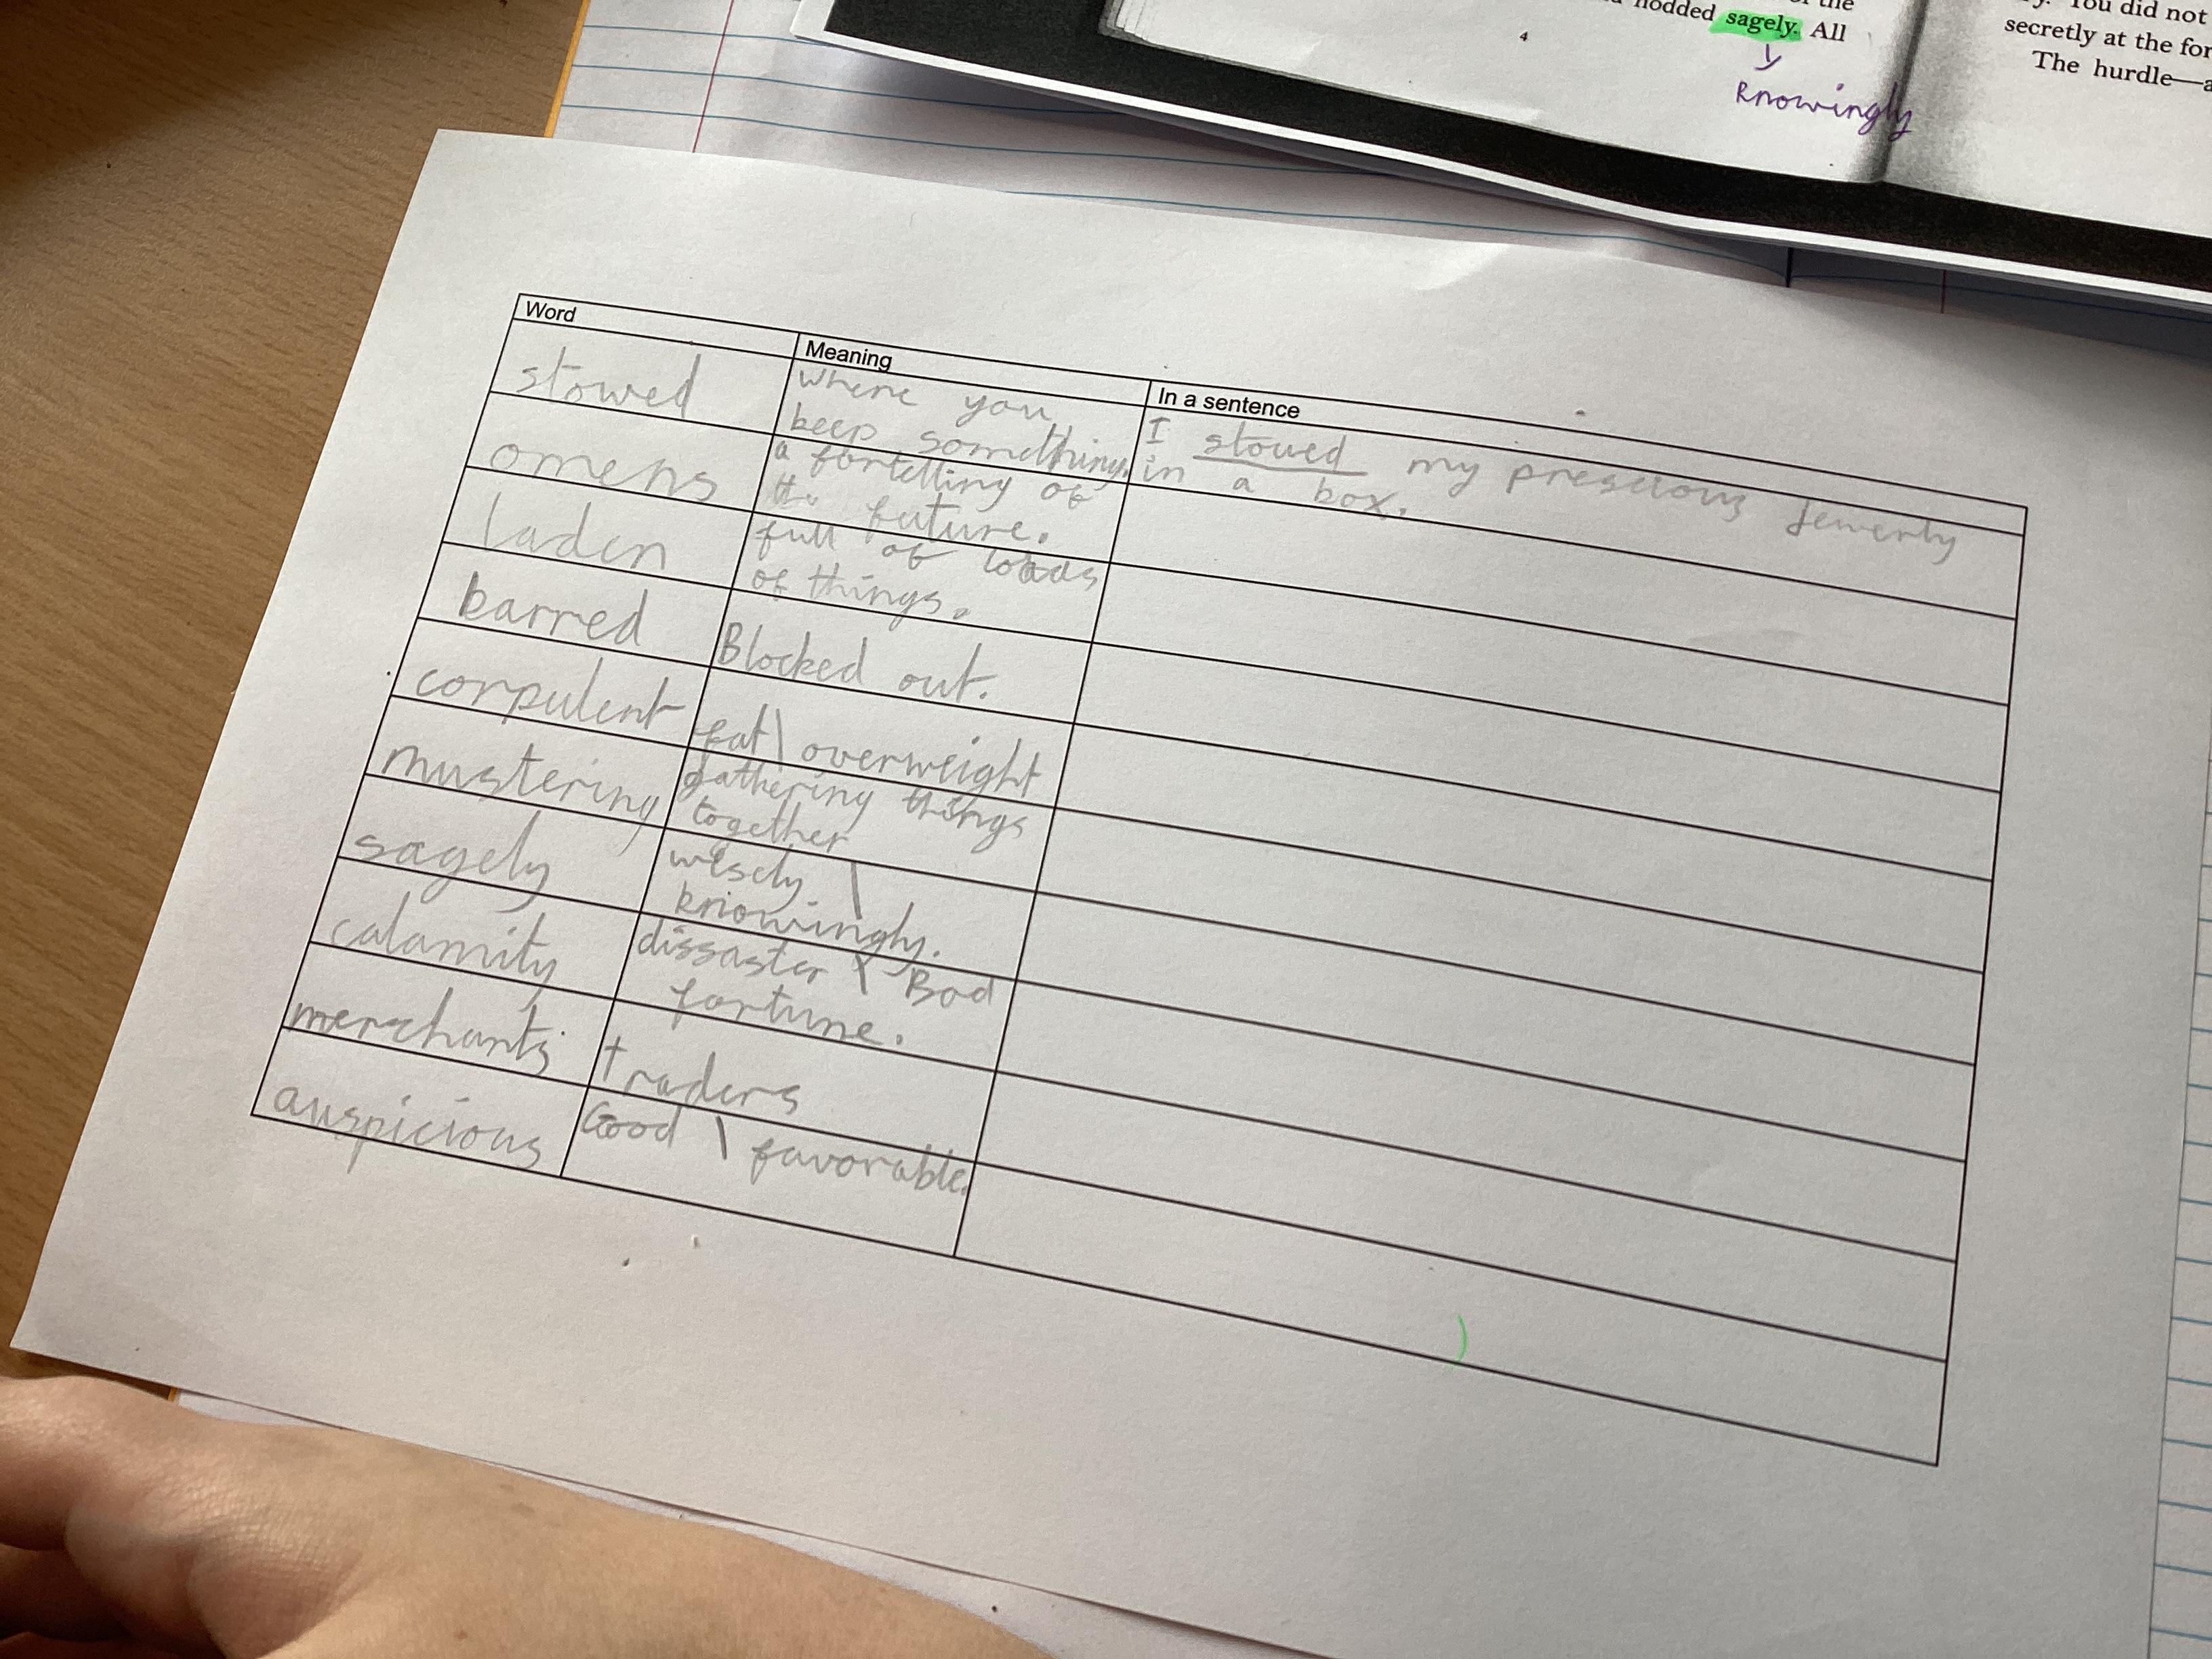 the
nodded sagely. All
knowingly
4
You did not
secretly at the for
The hurdle—a
Word
Meaning
In a sentence
stowed
where you
keep something.
I stowed my prescious Jewerly
in a box.
omens
a fortelling of
the future.
laden
full of loads
of things.
barred
Blocked out.
corpulent
fat\ overweight
mustering
gathering things
together
sagely
wisely \
knowingly.
calamity
dissaster \ Bad
fortune.
merchants
traders
auspicious
Good \ favorable.